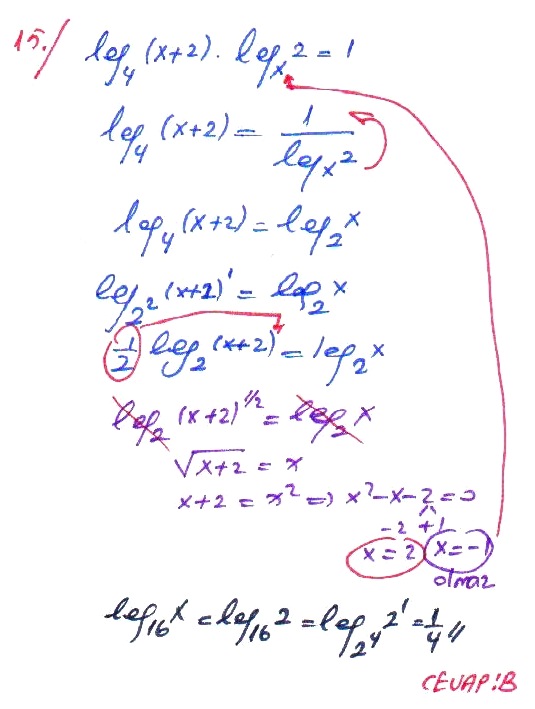 15./ log₄(x+2) . logₓ2 = 1
log₄(x+2) = 1/logₓ2
log₄(x+2) = log₂x
log₂²(x+2)¹ = log₂x
1/2 log₂(x+2) = log₂x
log₂(x+2)^1/2 = log₂x
√x+2 = x
x+2 = x² => x²-x-2=0
-2 +1
x=2 x=-1
olmaz
log₁₆x = log₁₆2 = log₂⁴2¹ = 1/4 //
CEVAP:B